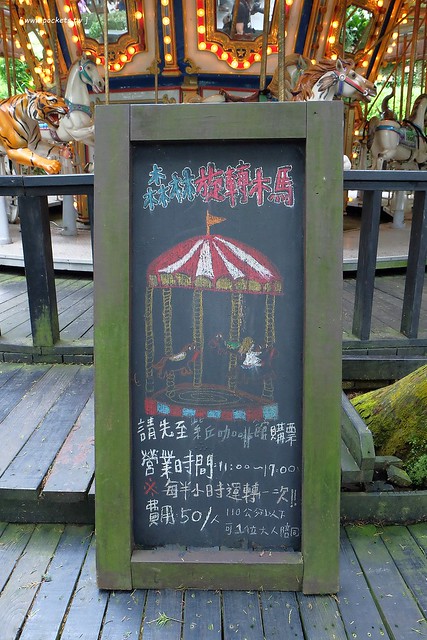 www.pockets.tw
森林旋轉木馬
請先至 葉丘咖啡館 購票
營業時間:11:00~17:00
※ 每半小時運轉一次!!
費用50/人 110公分以下
可1位大人陪同